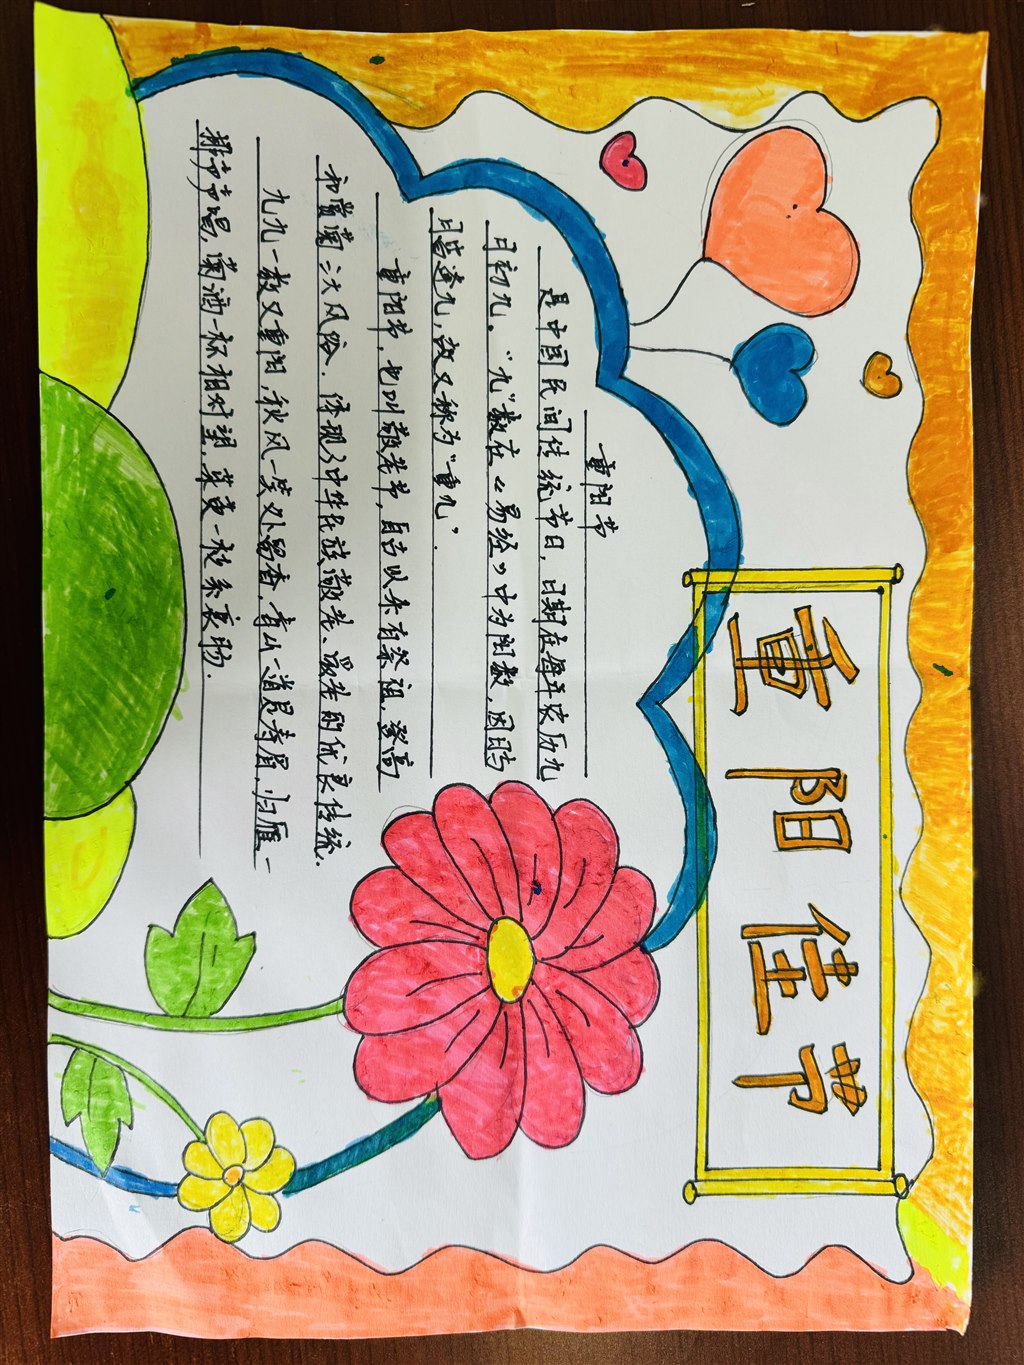 重阳佳节
重阳节
是中国民间传统节日，日期在每年农历九
月初九。“九”数在《易经》中为阳数，因日与
月皆逢九，故又称为“重九”．
重阳节，也叫敬老节，自古以来有祭祖，登高
和赏菊三大风俗．体现了中华民族敬老、爱老的优良传统．
九九一数又重阳，秋风一笑处留香，青山一道是寿眉，归雁一
排声声唱，菊酒一杯相对望，茱萸一衫系衷肠．